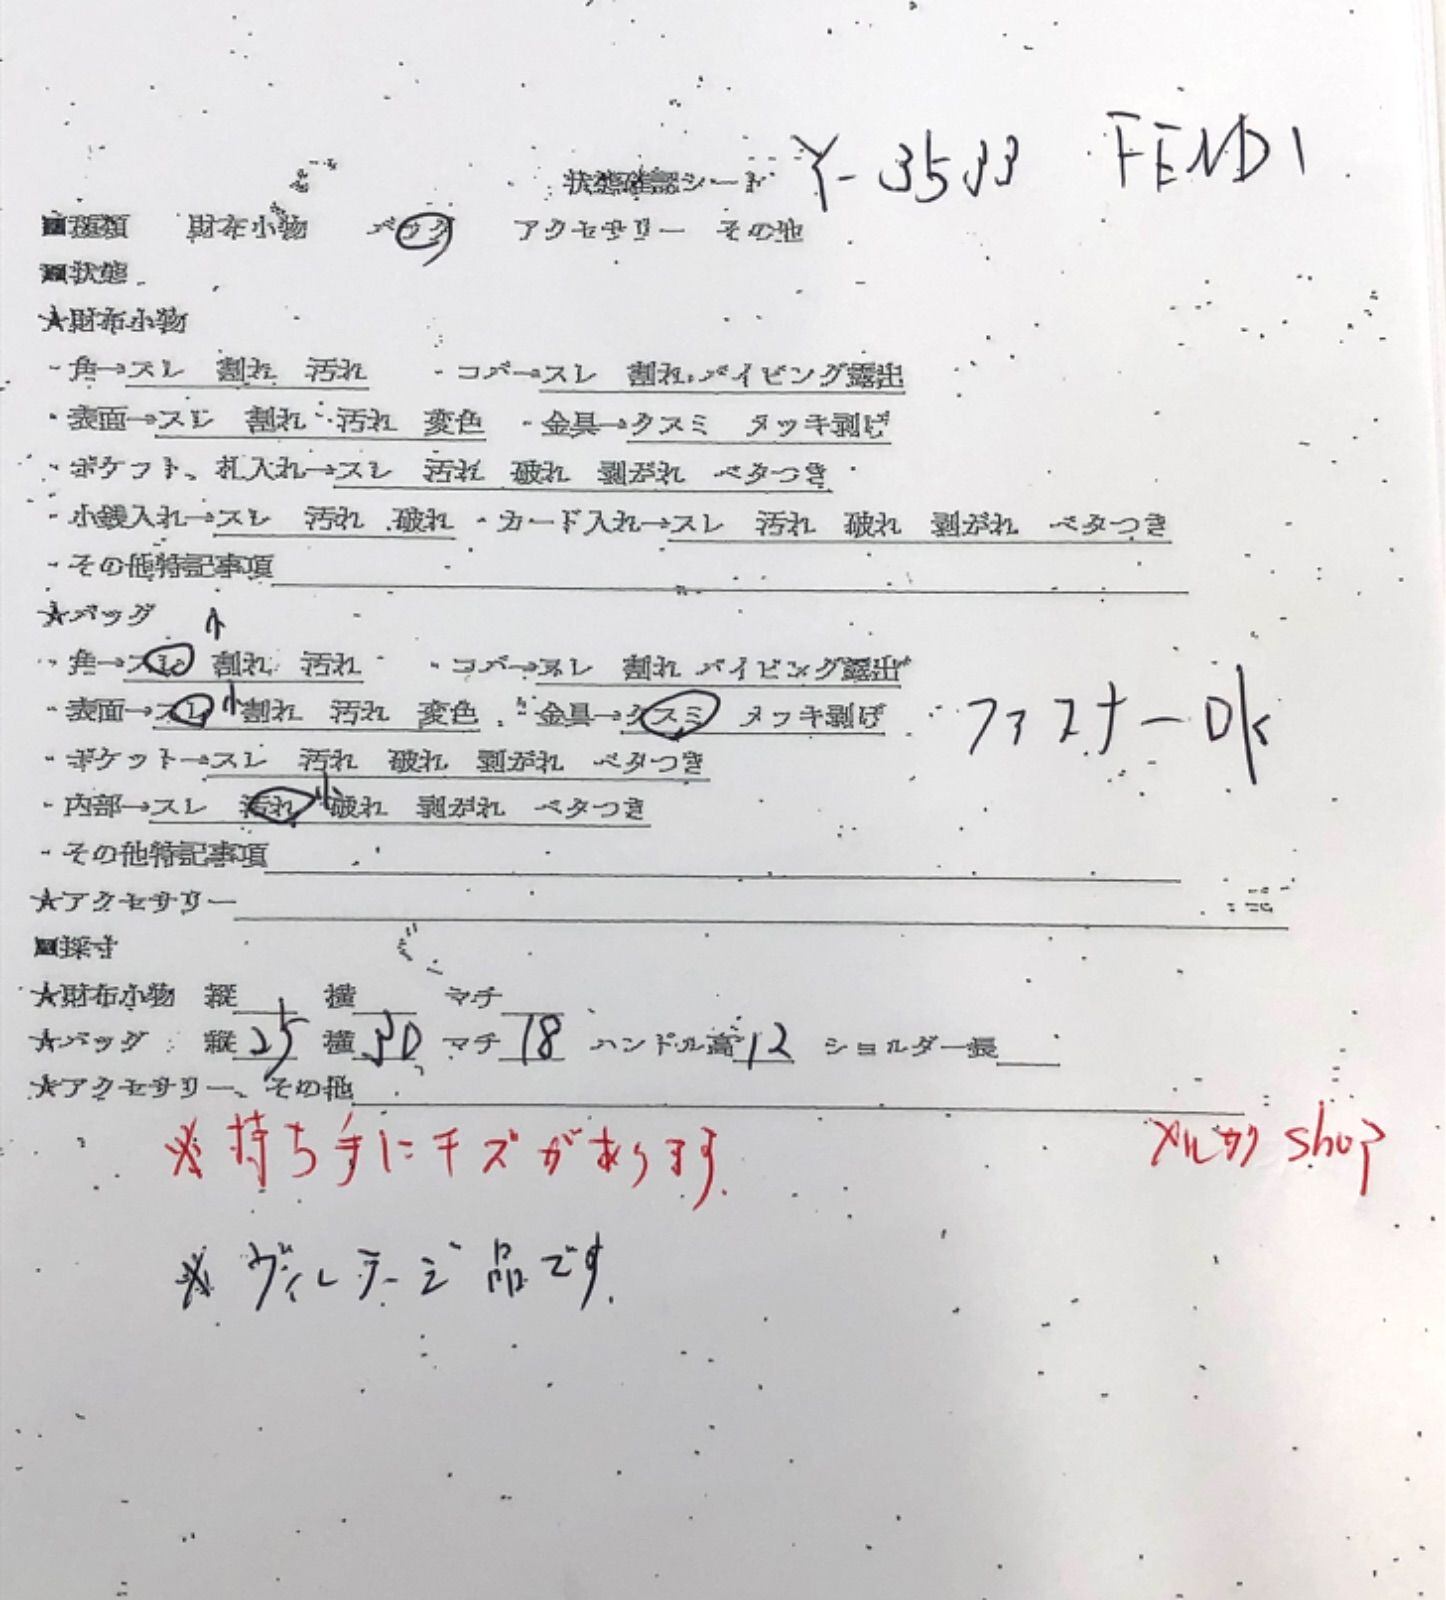 状態確認シート Y-3533 FENDI
■種類 財布小物 バッグ アクセサリー その他
■状態
★財布小物
・角→スレ 割れ 汚れ ・コバ→スレ 割れ パイピング露出
・表面→スレ 割れ 汚れ 変色 ・金具→クスミ メッキ剥げ
・ポケット、札入れ→スレ 汚れ 破れ 剥がれ ベタつき
・小銭入れ→スレ 汚れ 破れ ・カード入れ→スレ 汚れ 破れ 剥がれ ベタつき
・その他特記事項
★バッグ
・角→スレ 小 割れ 汚れ ・コバ→スレ 割れ パイピング露出
・表面→スレ 小 割れ 汚れ 変色 ・金具→クスミ メッキ剥げ ファスナーOK
・ポケット→スレ 汚れ 破れ 剥がれ ベタつき
・内部→スレ 汚れ 小 破れ 剥がれ ベタつき
・その他特記事項
★アクセサリー
■採寸
★財布小物 縦 横 マチ
★バッグ 縦25 横30 マチ18 ハンドル高12 ショルダー長
★アクセサリー、その他
※持ち手にキズがあります メルカリshop
※ヴィンテージ品です